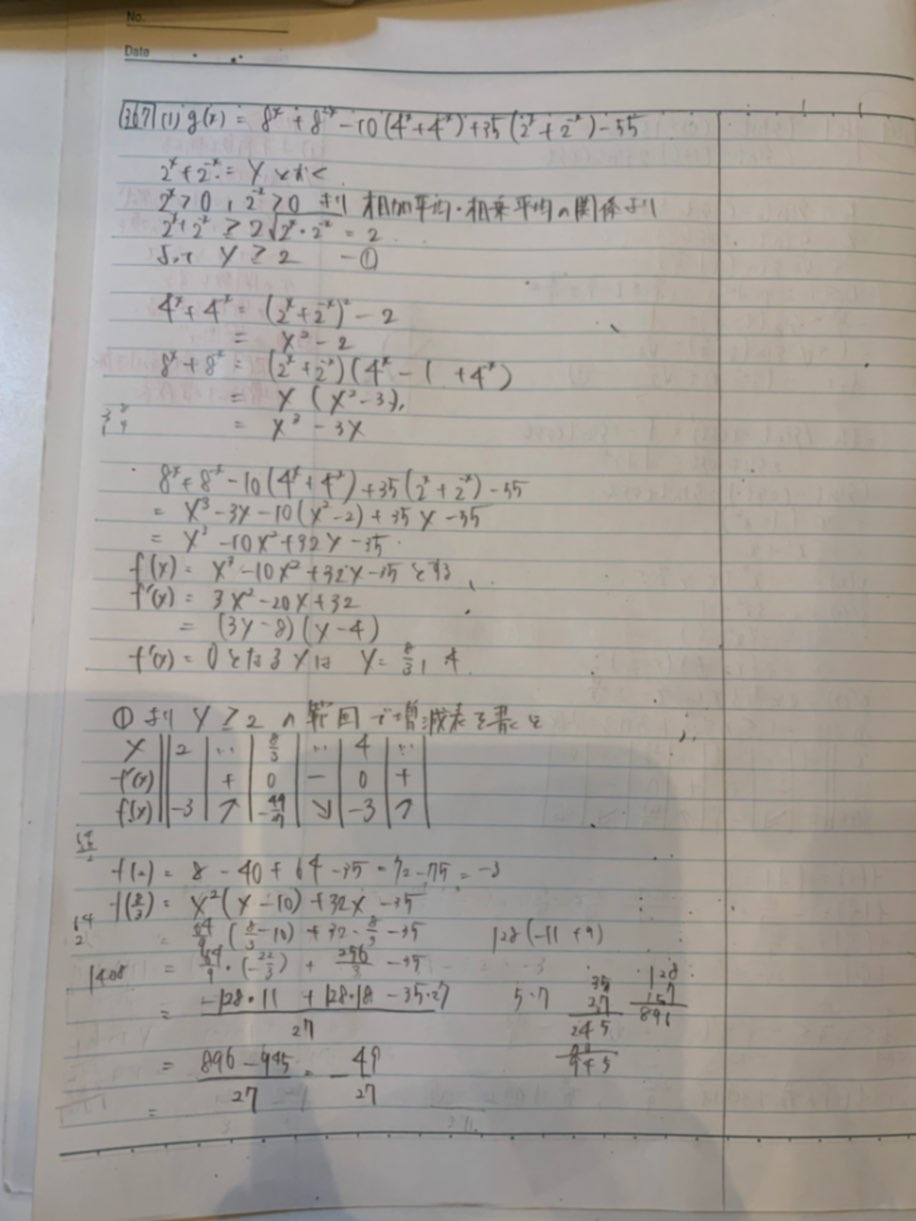 No.
Date
367 (1) g(x) = 8^x + 8^-x - 10(4^x + 4^-x) + 35(2^x + 2^-x) - 55
2^x + 2^-x = Y とおく
2^x > 0, 2^-x > 0 より 相加平均・相乗平均の関係より
2^x + 2^-x ≧ 2√2^x・2^-x = 2
よって Y ≧ 2 -①
4^x + 4^-x = (2^x + 2^-x)^2 - 2
= Y^2 - 2
8^x + 8^-x = (2^x + 2^-x)(4^x - 1 + 4^-x)
= Y(Y^2 - 3)
= Y^3 - 3Y
8^x + 8^-x - 10(4^x + 4^-x) + 35(2^x + 2^-x) - 55
= Y^3 - 3Y - 10(Y^2 - 2) + 35Y - 55
= Y^3 - 10Y^2 + 32Y - 35
f(Y) = Y^3 - 10Y^2 + 32Y - 35 とする
f'(Y) = 3Y^2 - 20Y + 32
= (3Y - 8)(Y - 4)
f'(Y) = 0 となる Y は Y = 8/3, 4
① より Y ≧ 2 の範囲で増減表を書くと
Y 2 … 8/3 … 4 …
f'(Y) + 0 - 0 +
f(Y) -3 ↗ -49/27 ↘ -3 ↗
f(2) = 8 - 40 + 64 - 35 = 72 - 75 = -3
f(8/3) = Y^2(Y - 10) + 32Y - 35
= 64/9 (8/3 - 10) + 32・8/3 - 35
128(-11 + 9)
1408
= 64/9・(-22/3) + 256/3 - 35
= -128・11 + 128・18 - 35・27 / 27
5・7
35
27
245
945
128
891
= 896 - 945 / 27 = - 49 / 27
=